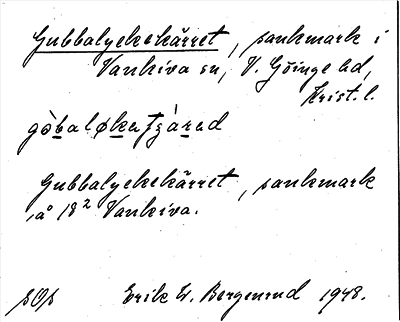 Gubbalyckekärret, sankmark i
Vankiva sn, V. Göinge hd,
Krist. l.
Gubbalyckekärret, sankmark
å 18² Vankiva.
Erik W. Bergenrud 1948.